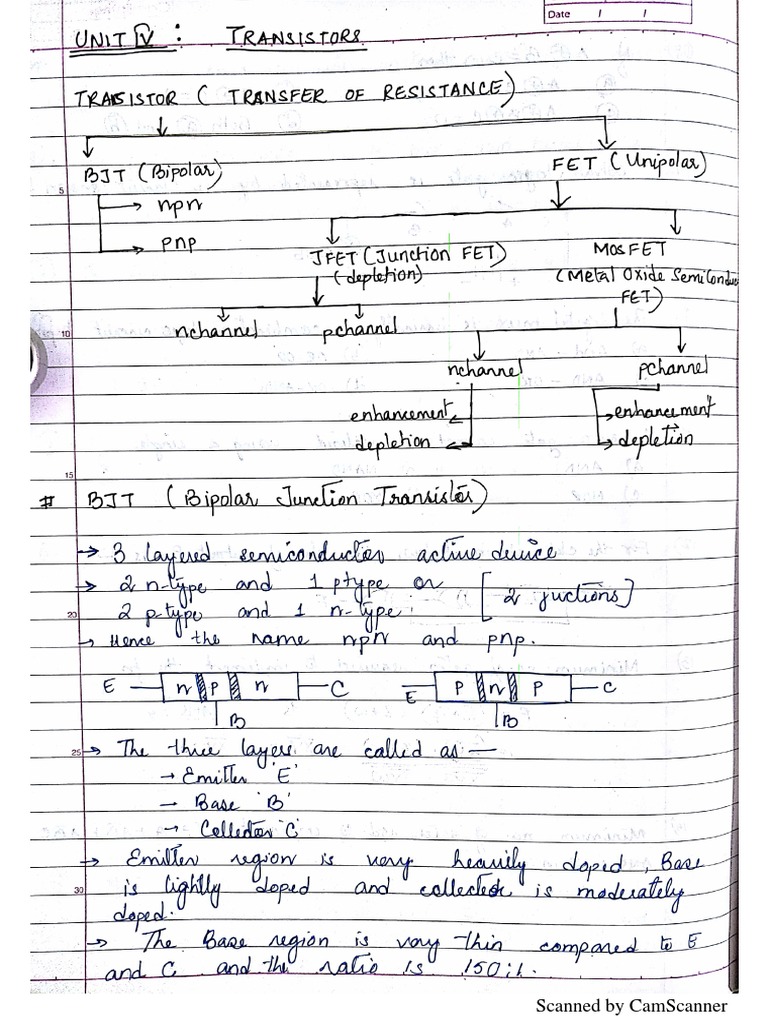 Date / /
UNIT IV : TRANSISTORS
TRANSISTOR ( TRANSFER OF RESISTANCE)
BJT (Bipolar)
FET (Unipolar)
5
npn
pnp
JFET (Junction FET)
(depletion)
MOSFET
(Metal Oxide Semiconduc
FET)
10
nchannel
pchannel
nchannel
pchannel
enhancement
depletion
enhancement
depletion
15
# BJT (Bipolar Junction Transistor)
→ 3 layered semiconductor active device
→ 2 n-type and 1 ptype or
20
2 p-type and 1 n-type.
[2 juctions]
→ Hence the name npn and pnp.
E n p n C
B
E P n P C
B
25
→ The three layers are called as —
→ Emitter 'E'
→ Base 'B'
→ Collector 'C'
→ Emitter region is very heavily doped, Base
30
is lightly doped and collector is moderately
doped.
→ The Base region is very thin compared to E
and C and the ratio is 150:1.
Scanned by CamScanner